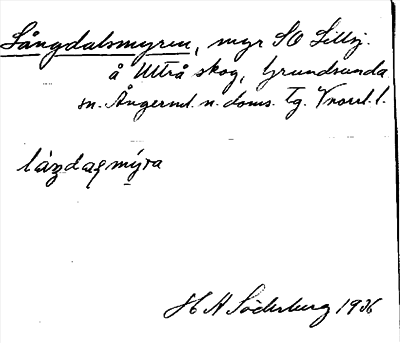 Långdalsmyren, myr SO Lillsj.
å Uttrå skog, Grundsunda
sn. Ångerml. n. doms. tg. Vnorrl. l.
H A Söderberg 1936